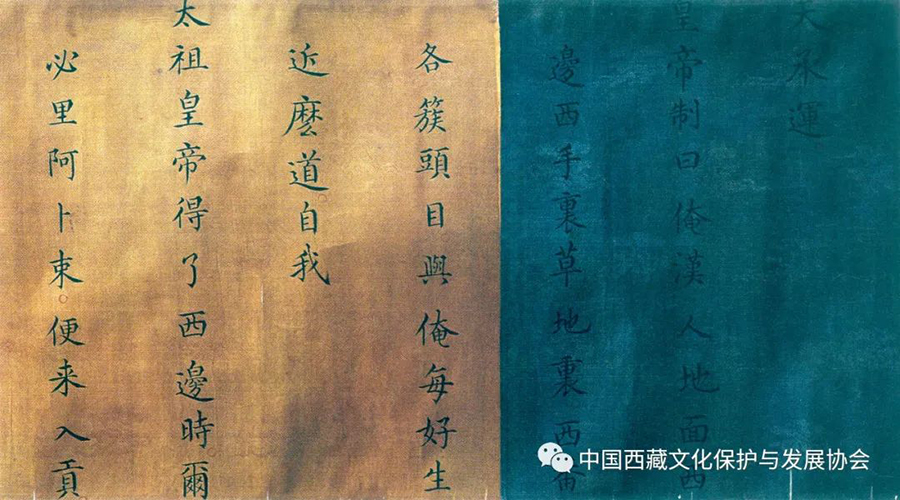 天承運
皇帝制曰俺漢人地面西
邊西手裏草地裏西番
各簇頭目與俺每好生
近麼道自我
太祖皇帝得了西邊時爾
必里阿卜束便来入貢
中国西藏文化保护与发展协会